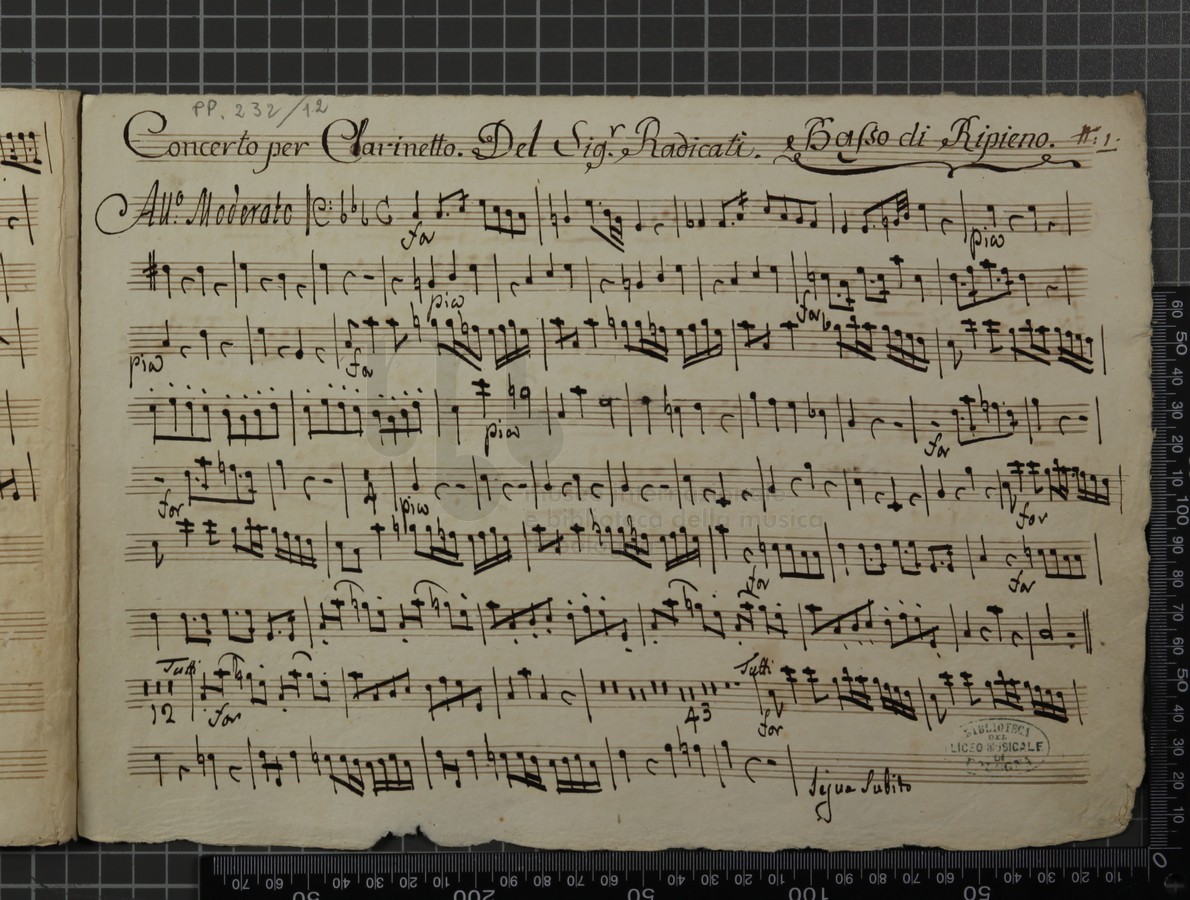 PP. 232/12
Concerto per Clarinetto. Del Sig.r Radicati. Basso di Ripieno. N: 1.
All.o Moderato
for
pia
pia
for
pia
for
pia
for
for
pia
for
for
for
Tutti
Tutti
12
for
43
for
BIBLIOTECA
DEL
LICEO MUSICALE
DI
BOLOGNA
Segue Subito
e biblioteca della musica